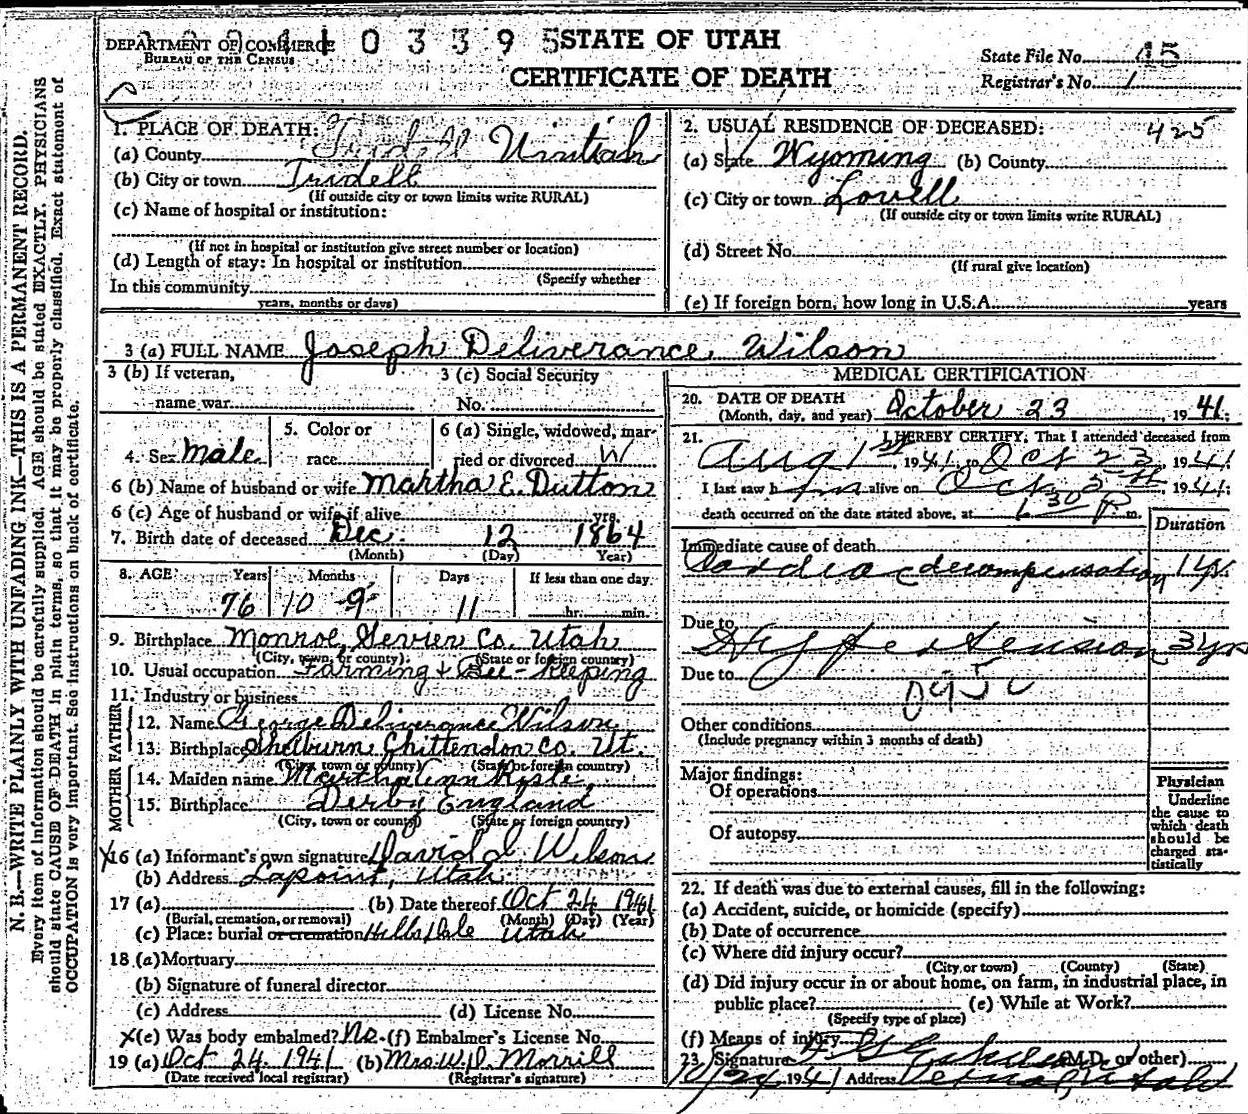 DEPARTMENT OF COMMERCE
BUREAU OF THE CENSUS
0 3 3 9 5
STATE OF UTAH
CERTIFICATE OF DEATH
State File No. 45
Registrar's No. 1
N. B.—WRITE PLAINLY WITH UNFADING INK—THIS IS A PERMANENT RECORD.
Every item of information should be carefully supplied. AGE should be stated EXACTLY. PHYSICIANS
should state CAUSE OF DEATH in plain terms, so that it may be properly classified. Exact statement of
OCCUPATION is very important. See instructions on back of certificate.
1. PLACE OF DEATH:
(a) County Uintah
(b) City or town Tridell
(If outside city or town limits write RURAL)
(c) Name of hospital or institution:
(If not in hospital or institution give street number or location)
(d) Length of stay: In hospital or institution
(Specify whether
In this community
years, months or days)
2. USUAL RESIDENCE OF DECEASED: 425
(a) State Wyoming (b) County
(c) City or town Lovell
(If outside city or town limits write RURAL)
(d) Street No.
(If rural give location)
(e) If foreign born, how long in U.S.A. years
3 (a) FULL NAME Joseph Deliverance Wilson
3 (b) If veteran,
name war
3 (c) Social Security
No.
4. Sex Male
5. Color or
race
6 (a) Single, widowed, mar-
ried or divorced W
6 (b) Name of husband or wife Martha E. Dutton
6 (c) Age of husband or wife if alive yrs.
7. Birth date of deceased Dec. 12 1864
(Month) (Day) Year)
8. AGE Years Months Days If less than one day
76 10 9 11 hr. min.
9. Birthplace Monroe, Sevier Co. Utah
(City, town, or county) (State or foreign country)
10. Usual occupation Farming & Bee-Keeping
11. Industry or business
FATHER
12. Name George Deliverance Wilson
13. Birthplace Shelburn Chittendon Co. Vt.
(City, town or county) (State or foreign country)
MOTHER
14. Maiden name Martha Ann Riste
15. Birthplace Derby England
(City, town or county) (State or foreign country)
X16 (a) Informant's own signature David J. Wilson
(b) Address Lapoint, Utah
17 (a) (b) Date thereof Oct 24 1941
(Burial, cremation, or removal) (Month) (Day) (Year)
(c) Place: burial or cremation Hillsdale Utah
18 (a) Mortuary
(b) Signature of funeral director
(c) Address (d) License No.
X(e) Was body embalmed? No. (f) Embalmer's License No.
19 (a) Oct 24. 1941 (b) Mrs. W. P. Morrill
(Date received local registrar) (Registrar's signature)
MEDICAL CERTIFICATION
20. DATE OF DEATH
(Month, day, and year) October 23, 1941;
21. I HEREBY CERTIFY, That I attended deceased from
Aug 1st 1941 to Oct 23, 1941
I last saw him alive on Oct 5th, 1941;
death occurred on the date stated above, at 30 P m.
Duration
Immediate cause of death
Cardiac decompensation 1 yr.
Due to
Hypertension 3 yrs
Due to
Other conditions
(Include pregnancy within 3 months of death)
Major findings:
Of operations
Of autopsy
Physician
Underline
the cause to
which death
should be
charged sta-
tistically
22. If death was due to external causes, fill in the following:
(a) Accident, suicide, or homicide (specify)
(b) Date of occurrence
(c) Where did injury occur?
(City or town) (County) (State)
(d) Did injury occur in or about home, on farm, in industrial place, in
public place? (e) While at Work?
(Specify type of place)
(f) Means of injury
23. Signature (M.D. or other)
10/24 1941 Address Vernal, Utah